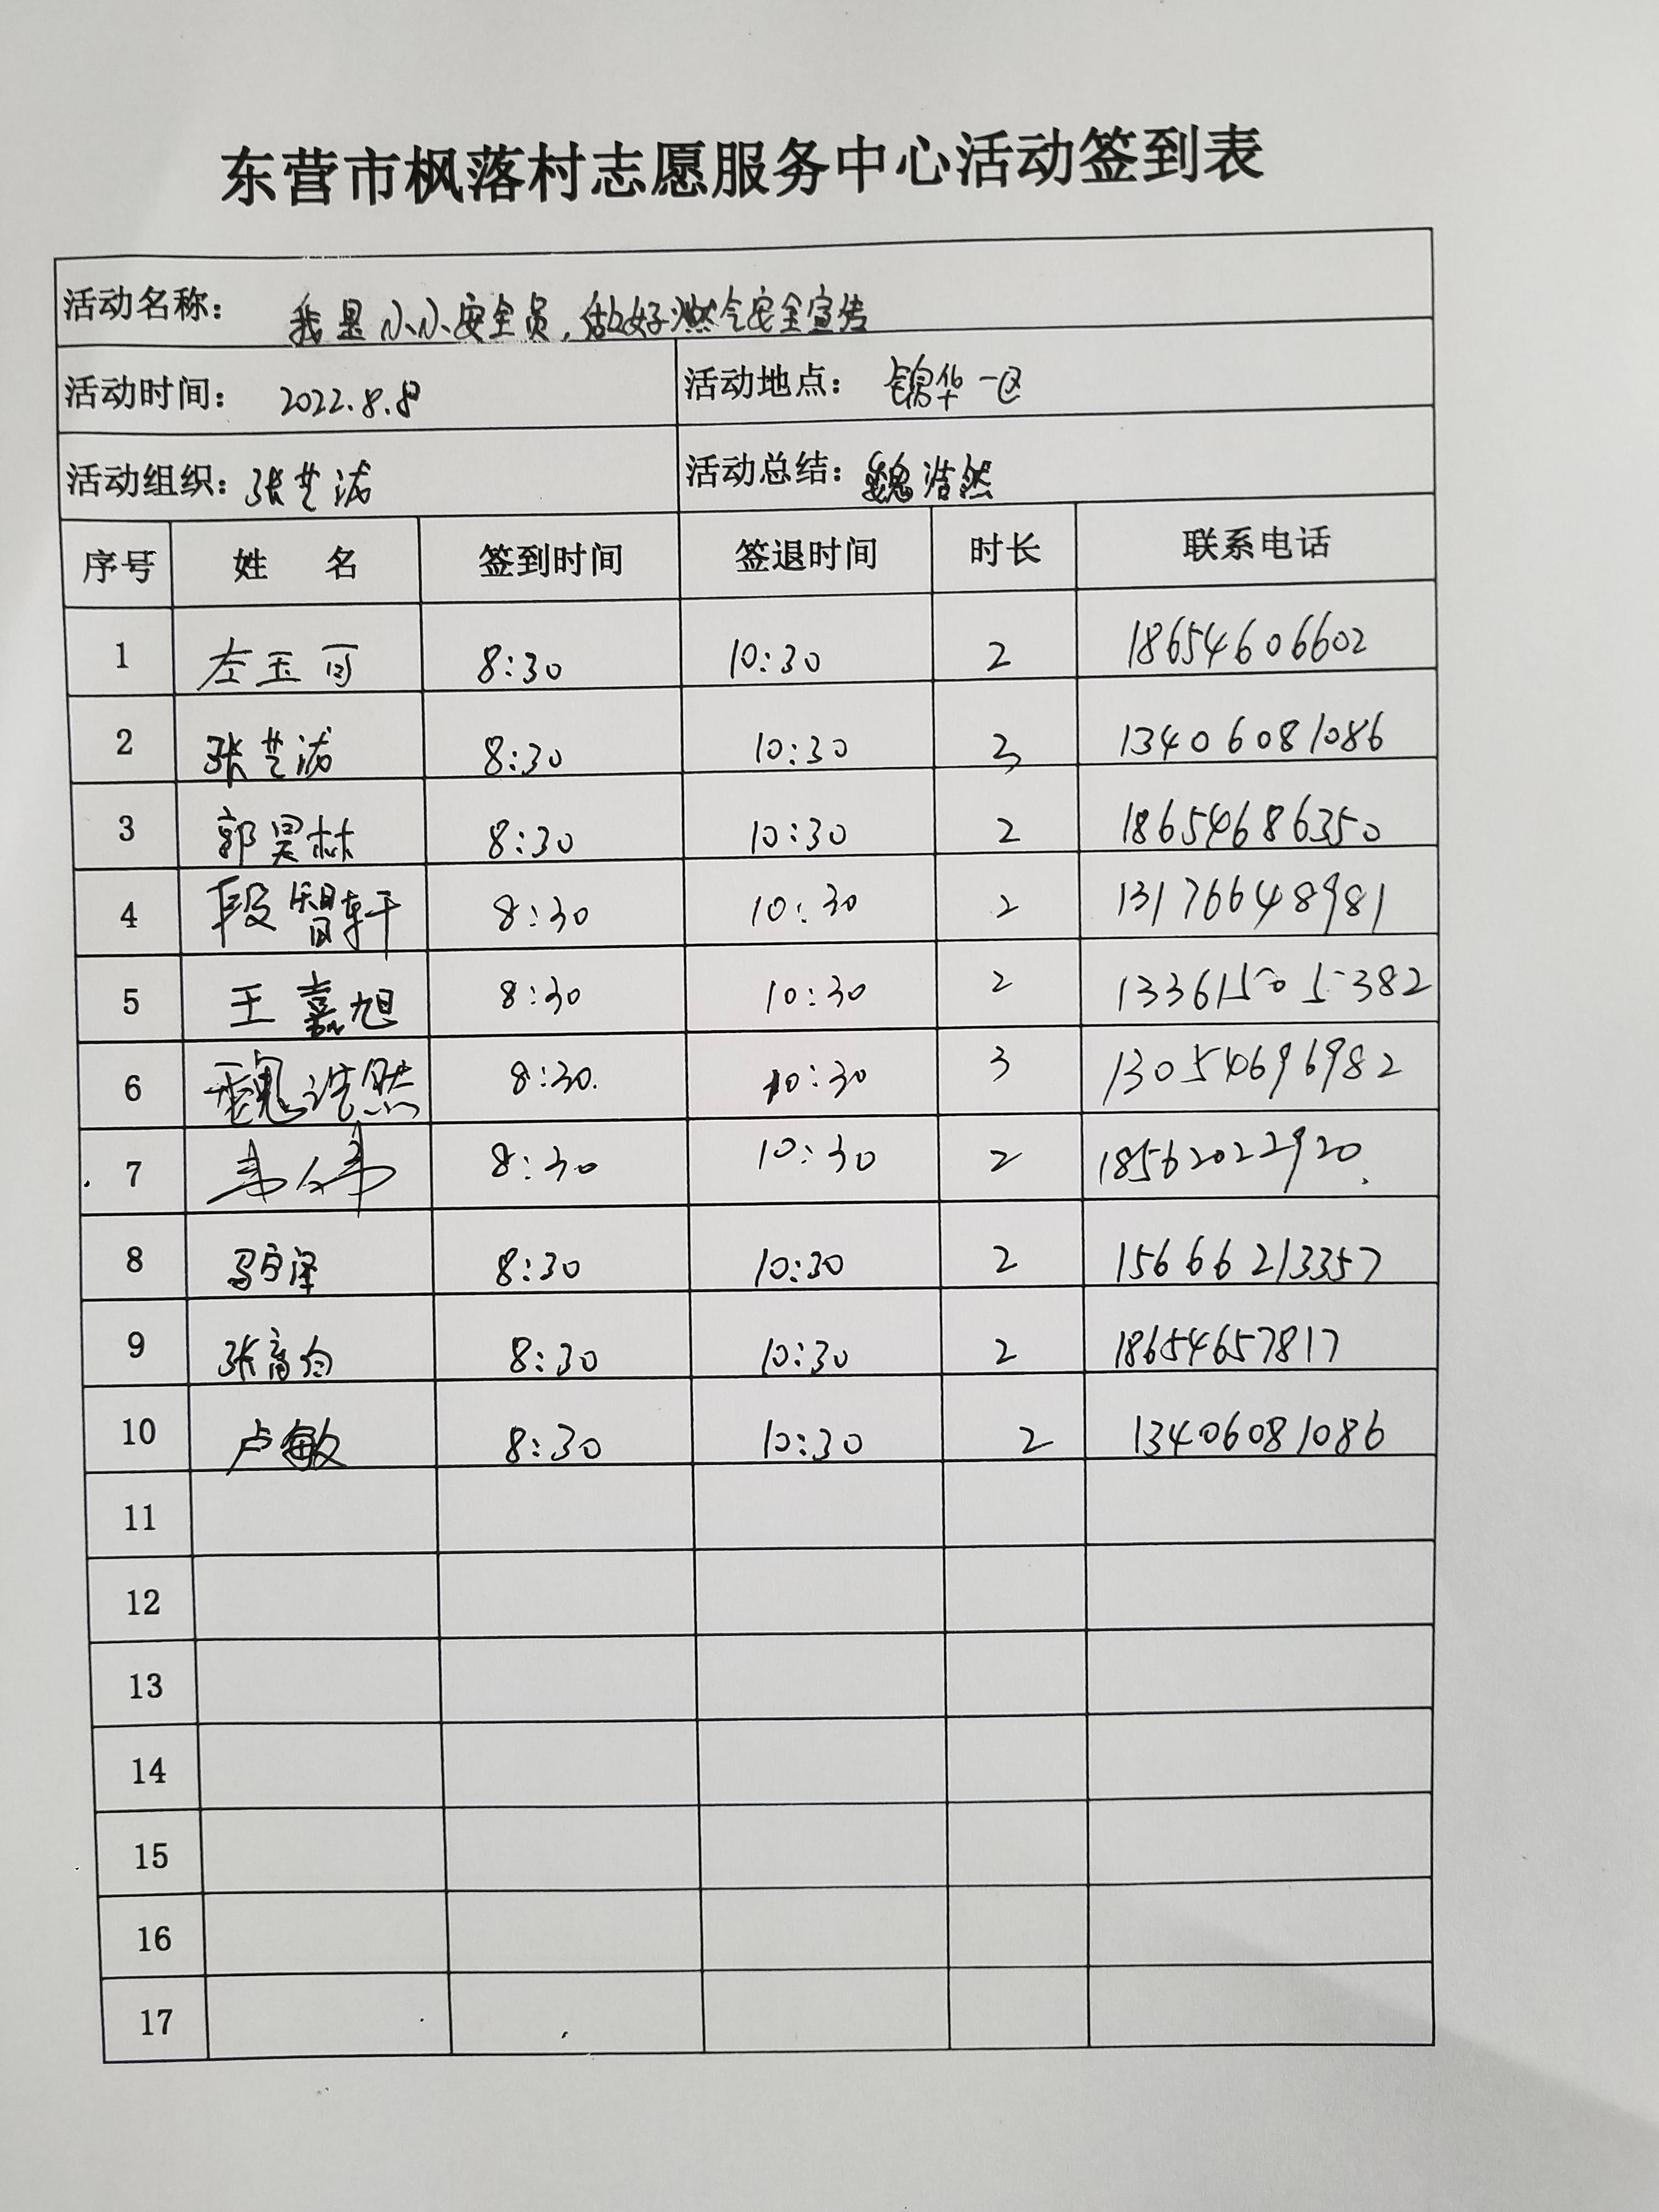 东营市枫落村志愿服务中心活动签到表
活动名称: 我是小小安全员,做好燃气安全宣传
活动时间: 2022.8.8 活动地点: 锦华一区
活动组织: 张艺 活动总结: 魏浩然
序号 姓 名 签到时间 签退时间 时长 联系电话
1 左玉可 8:30 10:30 2 18654606602
2 张艺 8:30 10:30 3 13406081086
3 郭昊林 8:30 10:30 2 18654686350
4 段智轩 8:30 10:30 2 13176648981
5 王嘉旭 8:30 10:30 2 13361505382
6 魏浩然 8:30. 10:30 3 13054696982
7 8:30 10:30 2 18562022920.
8 8:30 10:30 2 15666213357
9 张高 8:30 10:30 2 18654657817
10 卢敏 8:30 10:30 2 13406081086
11
12
13
14
15
16
17